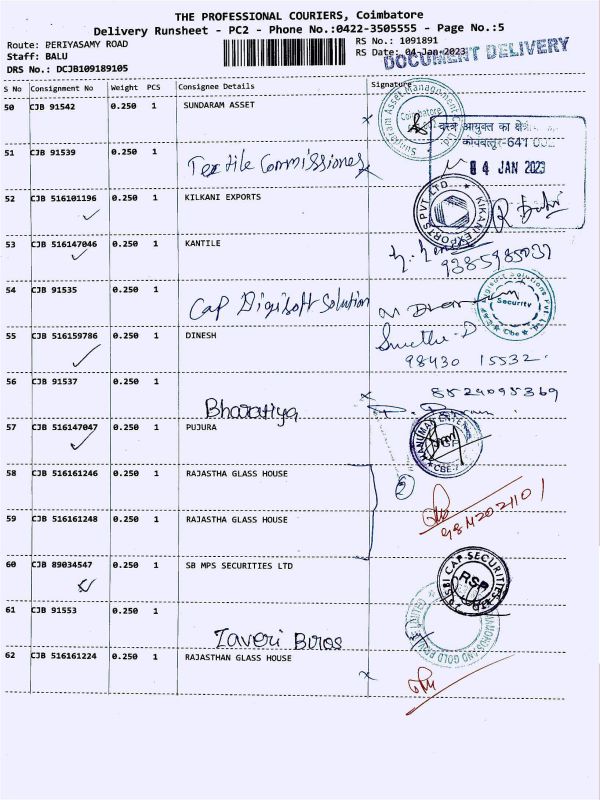 THE PROFESSIONAL COURIERS, Coimbatore
Delivery Runsheet - PC2 - Phone No.:0422-3505555 - Page No.:5
Route: PERIYASAMY ROAD
Staff: BALU
DRS No.: DCJB109189105
RS No.: 1091891
RS Date: 04-Jan-2023
DOCUMENT DELIVERY
S No Consignment No Weight PCS Consignee Details Signature
50 CJB 91542 0.250 1 SUNDARAM ASSET
Sundaram Asset Management
Coimbatore
51 CJB 91539 0.250 1 Textile Commissioner
वस्त्र आयुक्त का
कोयंबत्तूर-641
04 JAN 2023
52 CJB 516101196 0.250 1 KILKANI EXPORTS
EXPORTS PVT. LTD.
53 CJB 516147046 0.250 1 KANTILE
9385985031
54 CJB 91535 0.250 1 Cap Digisoft Solution
Security
55 CJB 516159786 0.250 1 DINESH
98430 15532
56 CJB 91537 0.250 1 Bharatiya
8524095369
57 CJB 516147047 0.250 1 PUJURA
HANUMAN
CBE
58 CJB 516161246 0.250 1 RAJASTHA GLASS HOUSE
2
59 CJB 516161248 0.250 1 RAJASTHA GLASS HOUSE
60 CJB 89034547 0.250 1 SB MPS SECURITIES LTD
SBI CAP SECURITIES
RSP
61 CJB 91553 0.250 1 Zaveri Bros
62 CJB 516161224 0.250 1 RAJASTHAN GLASS HOUSE